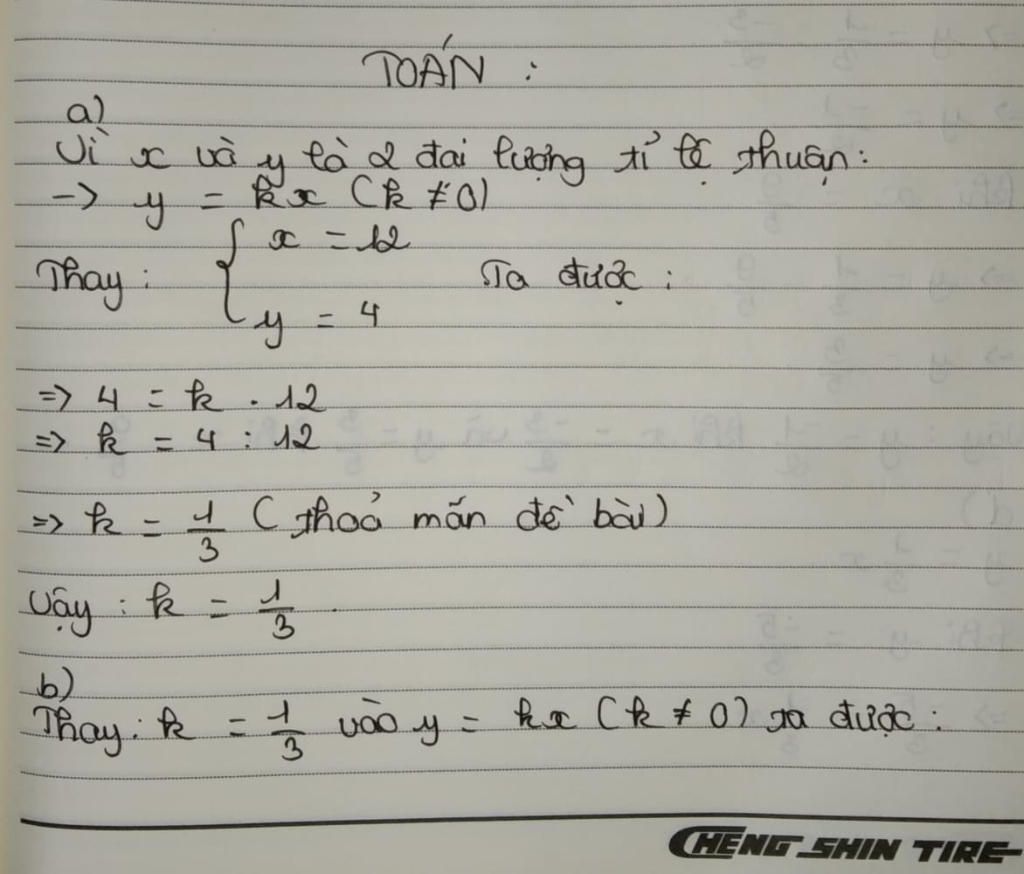 TOÁN :
a)
Vì x và y là 2 đại lượng tỉ lệ thuận:
-> y = kx (k ≠ 0)
Thay : { x = 12
y = 4 Ta được :
=> 4 = k . 12
=> k = 4 : 12
=> k = 1/3 (thoả mãn đề bài)
Vậy : k = 1/3 .
b)
Thay : k = 1/3 vào y = kx (k ≠ 0) ta được :
CHENG SHIN TIRE